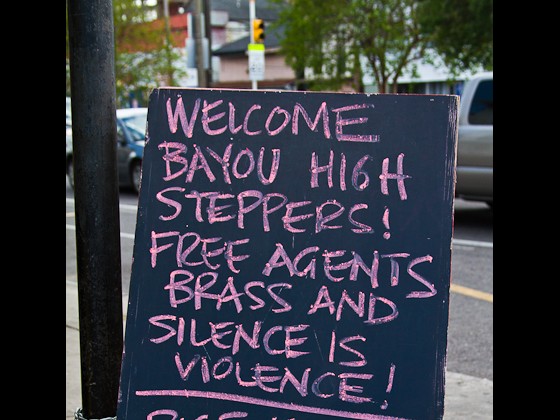 WELCOME
BAYOU HIGH
STEPPERS!
FREE AGENTS
BRASS AND
SILENCE IS
VIOLENCE!